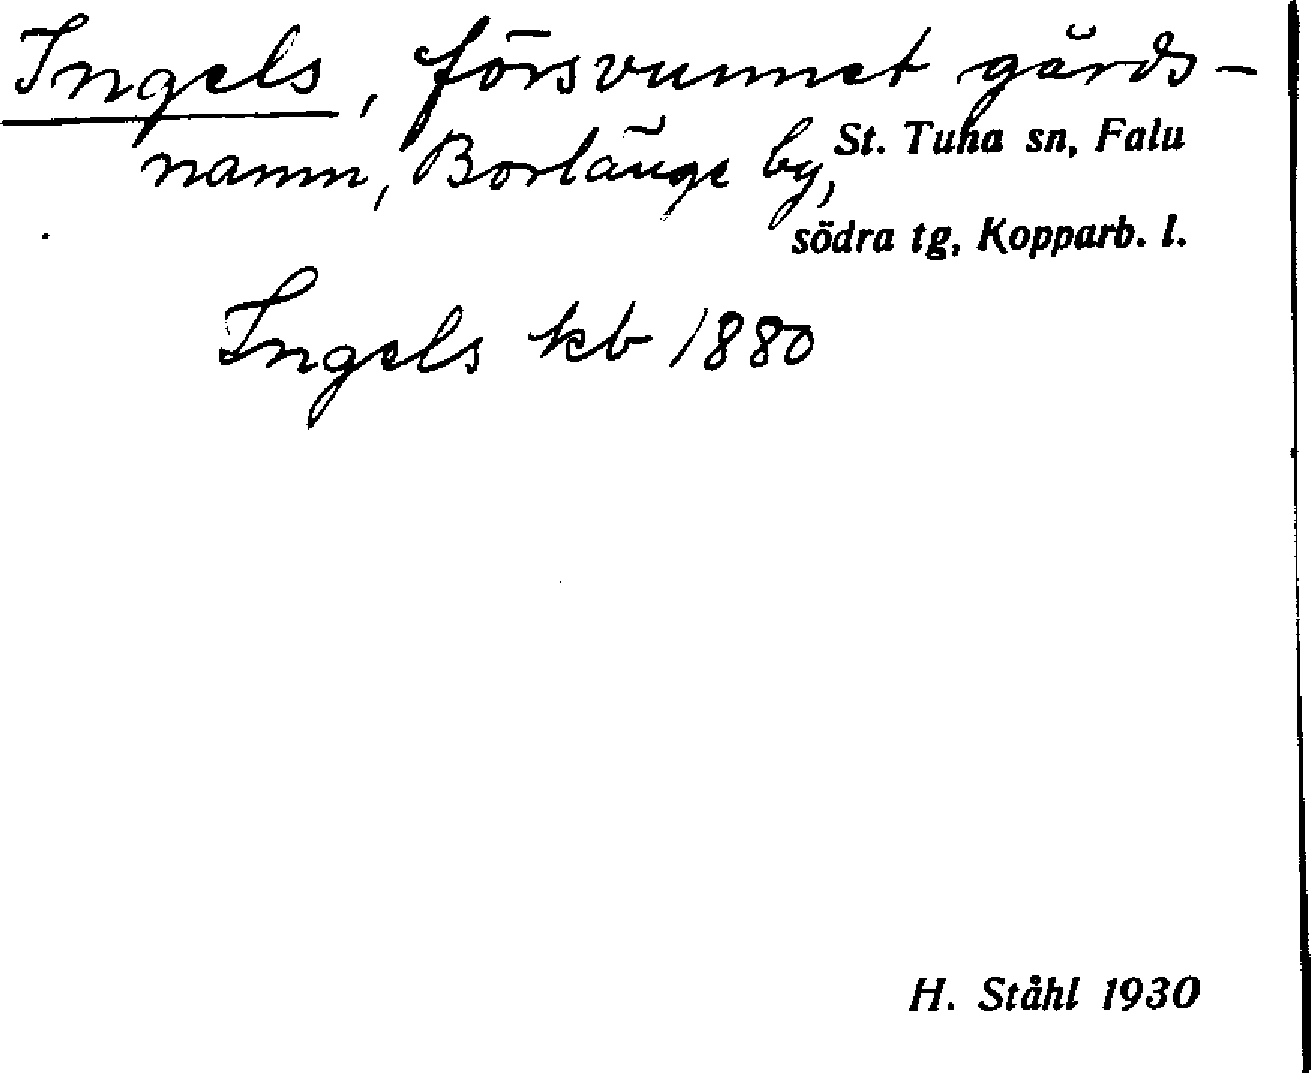 Ingels, försvunnet gårds-
namn, Borlänge by, St. Tuna sn, Falu
södra tg, Kopparb. l.
Ingels kb 1880
H. Ståhl 1930